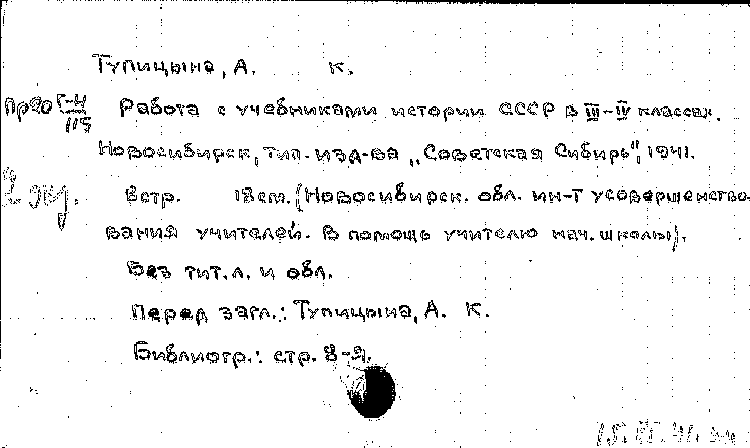 Тупицына, А. К.
Пр90 Г-4/115 Работа с учебниками истории СССР в III-IV классах.
Новосибирск, тип. изд-ва „Советская Сибирь", 1941.
2 экз. 8 стр. 18 см. (Новосибирск. обл. ин-т усовершенство-
вания учителей. В помощь учителю нач. школы).
Без тит. л. и обл.
Перед загл.: Тупицына, А. К.
Библиогр.: стр. 8-9.